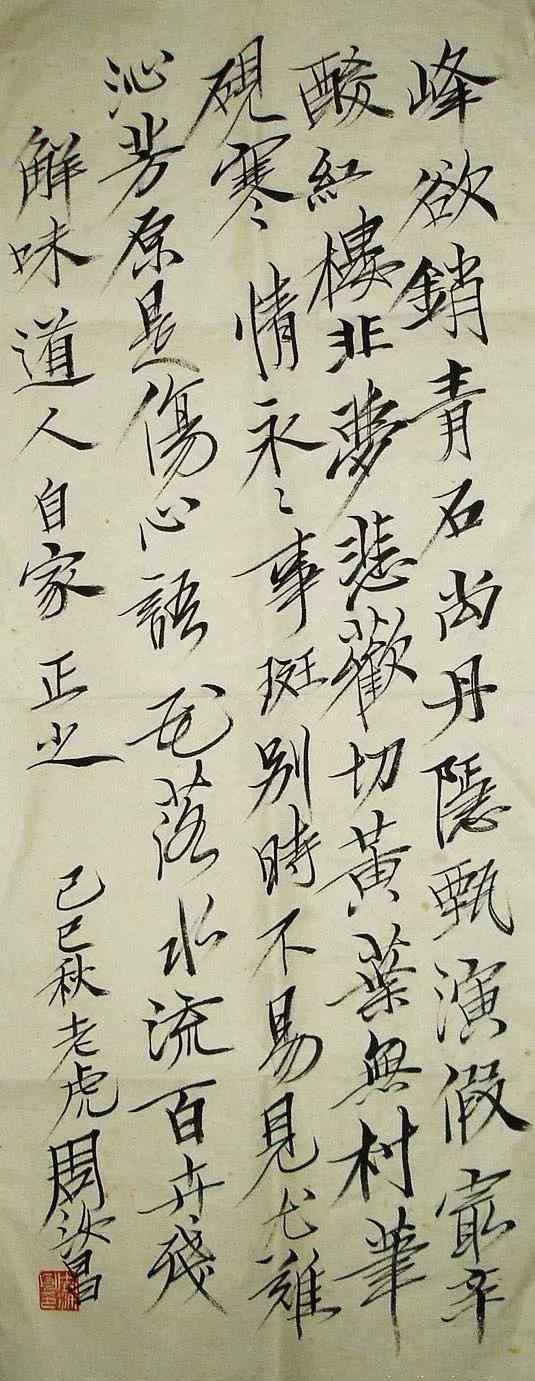 峰欲銷青石尚丹隱甄演假寔辛
酸紅樓非夢悲歡切黃葉無村筆
硯寒情永事珽別時不易見尤難
沁芳原是傷心語花落水流百卉殘
解味道人自家正之
己巳秋老虎周汝昌